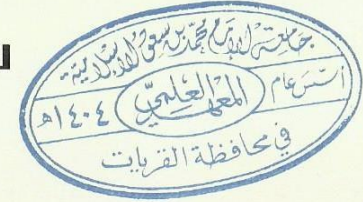 جامعة الإمام محمد بن سعود الإسلامية
أسس عام
المعهد العلمي
١٤٠٤هـ
في محافظة القريات